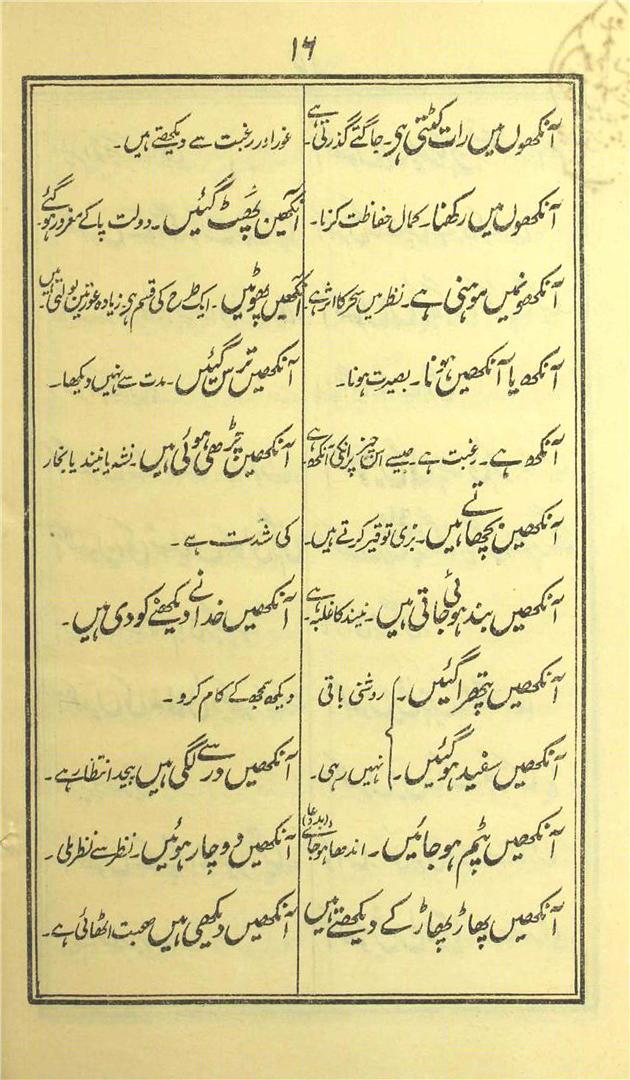 ۱۶
آنکھوں میں رات کٹتی ہی۔ جاگتے گذرتی ہے۔
آنکھوں میں رکھنا۔ کمال حفاظت کرنا۔
آنکھونمیں موہنی ہے۔ نظر میں سحر کا اثر ہے۔
آنکھ یا آنکھین ہونا۔ بصیرت ہونا۔
آنکھ ہے۔ رغبت ہے۔ جیسے اس چیز پر انکی آنکھ ہے
آنکھین بچھاتے ہیں۔ بڑی توقیر کرتے ہیں۔
آنکھیں بند ہوئی جاتی ہیں۔ نیند کا غلبہ ہے۔
آنکھیں پتھرا گئیں۔ روشنی باقی
آنکھیں سفید ہو گئیں۔ نہیں رہی۔
آنکھیں پٹم ہو جائیں۔ اندھا ہو جائے (بددعا)
آنکھیں پھاڑ پھاڑ کے دیکھتے ہیں
غور اور رغبت سے دیکھتے ہیں۔
آنکھین پھٹ گئیں۔ دولت پا کے مغرور ہو گئے۔
آنکھیں پھوٹیں۔ ایک طرح کی قسم ہی۔ زیادہ عورتین بولتی ہیں۔
آنکھیں ترس گئیں۔ مدت سے نہیں دیکھا۔
آنکھین چڑھی ہوئی ہیں۔ نشہ یا نیند یا بخار
کی شدت ہے۔
آنکھیں خدا نے دیکھنے کو دی ہیں۔
دیکھ سمجھ کے کام کرو۔
آنکھیں در سے لگی ہیں بیحد انتظار ہے۔
آنکھیں دو چار ہوئیں۔ نظر سے نظر ملی۔
آنکھیں دیکھی ہیں صحبت اٹھائی ہے۔